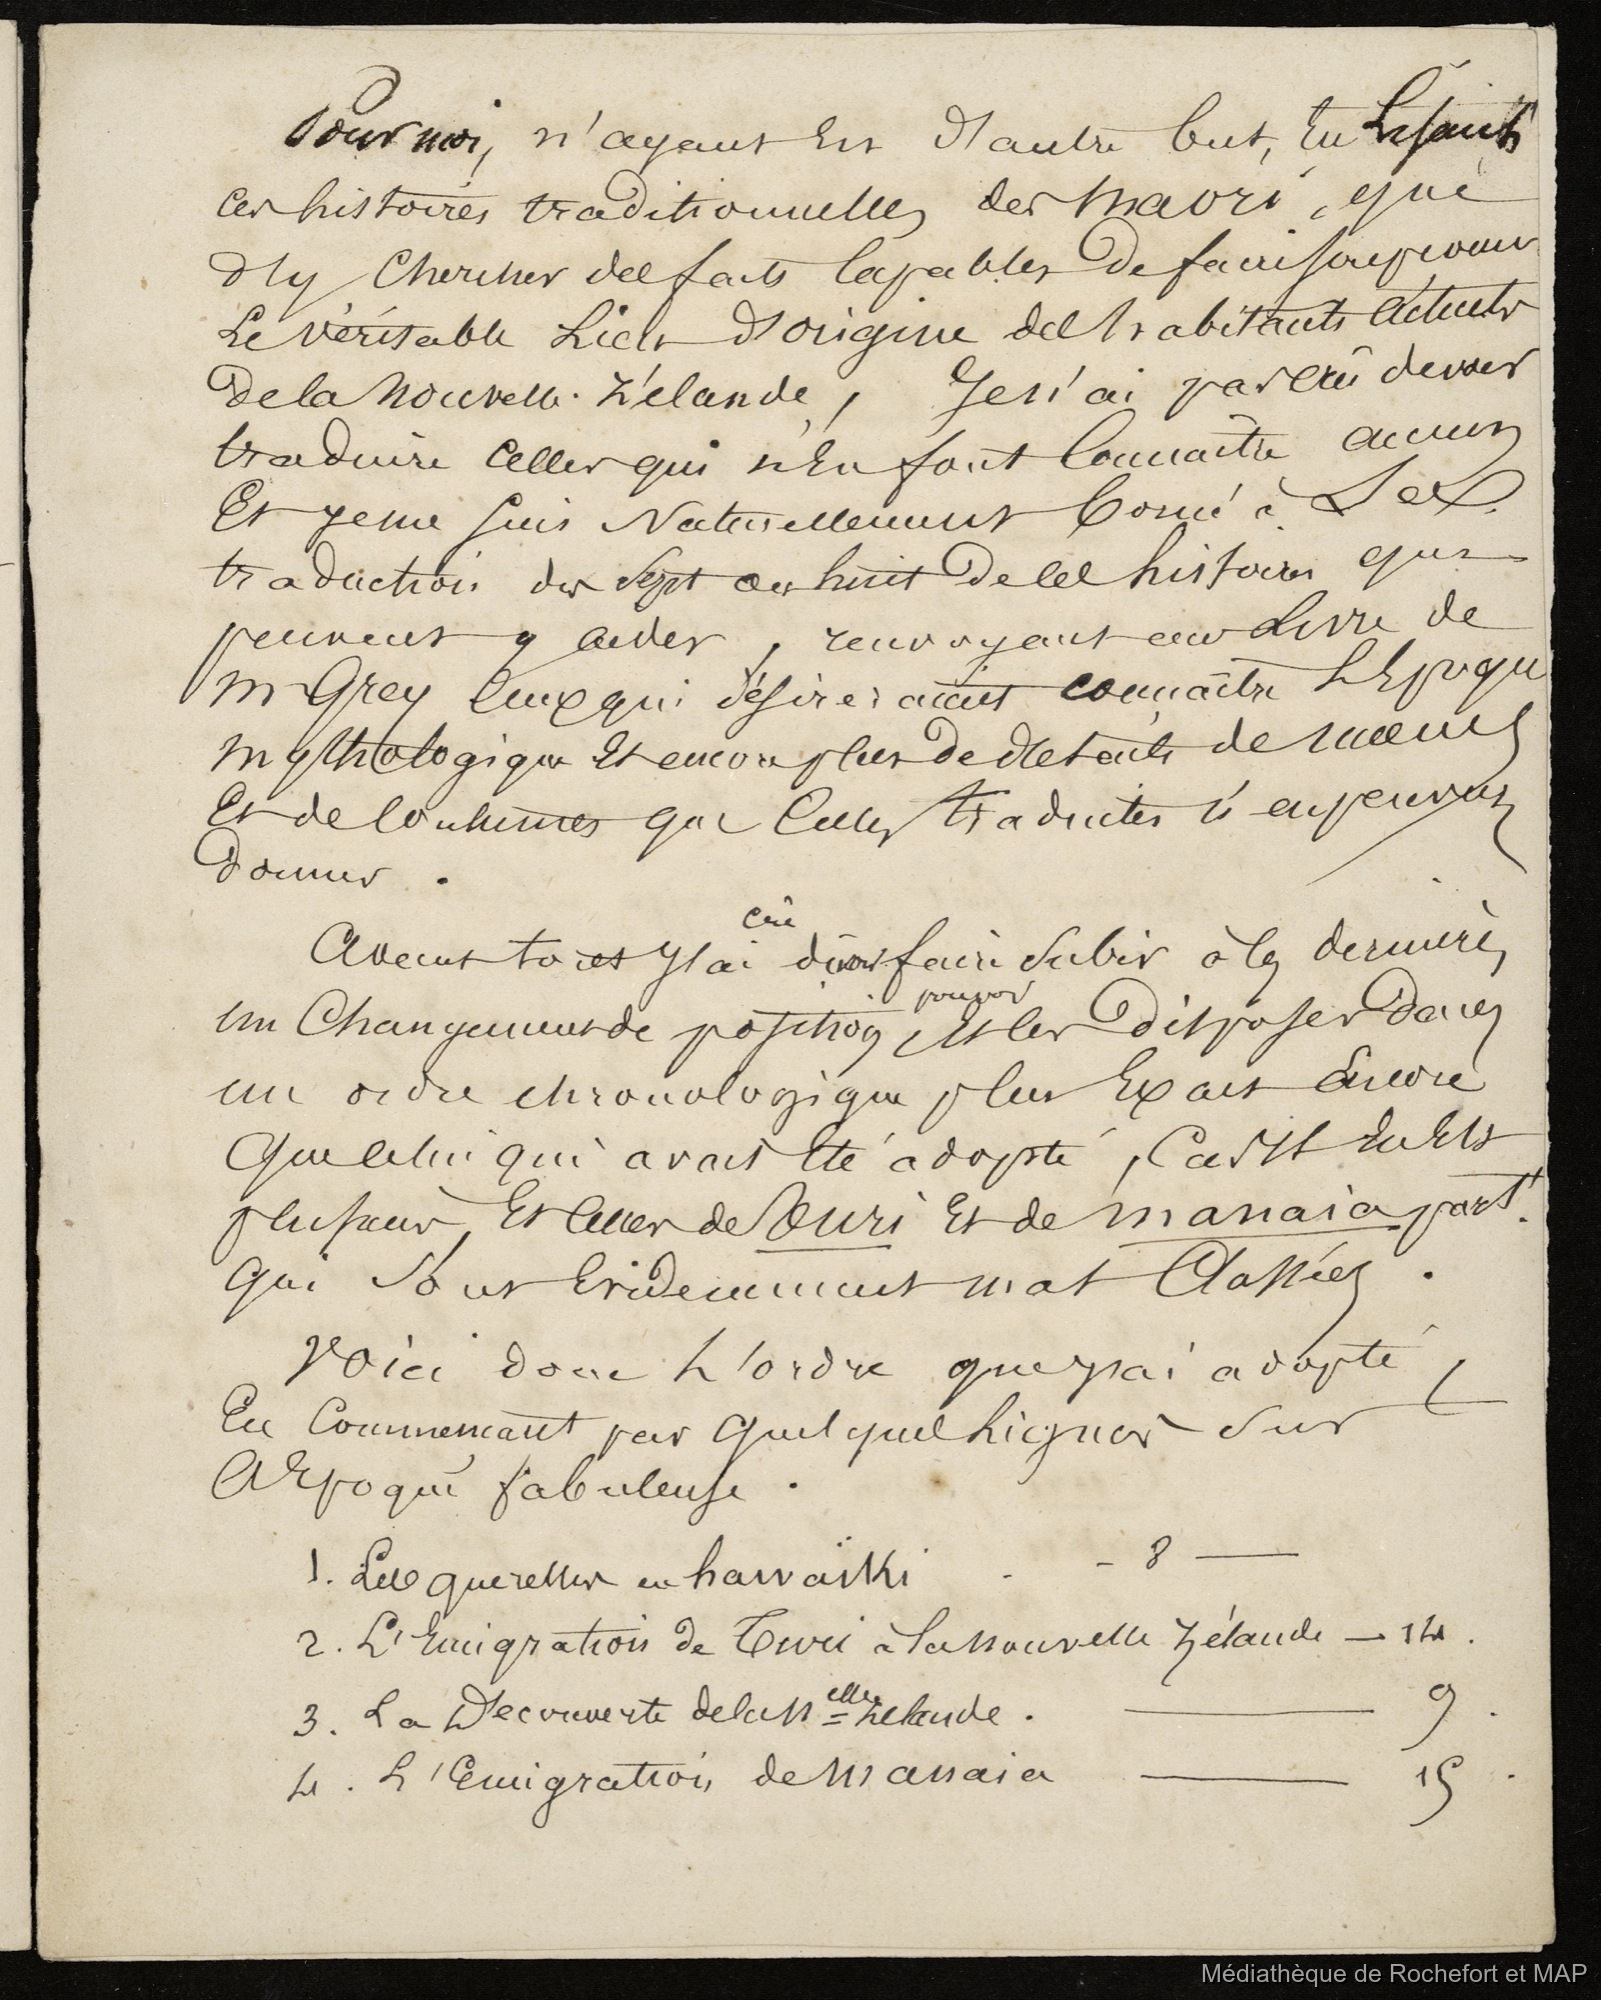 Pour moi, n'ayant eu d'autre but, en lisant
ces histoires traditionnelles des maori, que
d'y chercher des faits capables de faire soupçonner
le véritable lieu d'origine des habitants actuels
de la Nouvelle-Zélande, je n'ai pas crû devoir
traduire celles qui n'en font connaitre aucun
et je me suis naturellement borné à
traduction des sept ou huit de ces histoires qui
peuvent y aider, renvoyant au livre de
Mr Grey ceux qui désireraient connaître l'Epoque
mythologique et encore plus de détails de moeurs
et de coutumes que celles traduites n'en peuvent
donner.
Avant tout j'ai crû devoir faire subir à ces dernières
un changement de position, pouvoir et les disposer dans
un ordre chronologique plus exact encore
que celui qui avait été adopté, car il en est
plusieurs, et celles de Turi et de Manaia part.
qui sont évidemment mal classées.
Voici donc l'ordre que j'ai adopté,
En commençant par quelques lignes sur
l'Epoque fabuleuse.
1. Les querelles en hawaïki - 8 —
2. L'Emigration de Turi à la Nouvelle Zélande — 14.
3. La Découverte de la Nelle Zelande. — 9.
4. L'Emigration de Manaia — 15.
Médiathèque de Rochefort et MAP